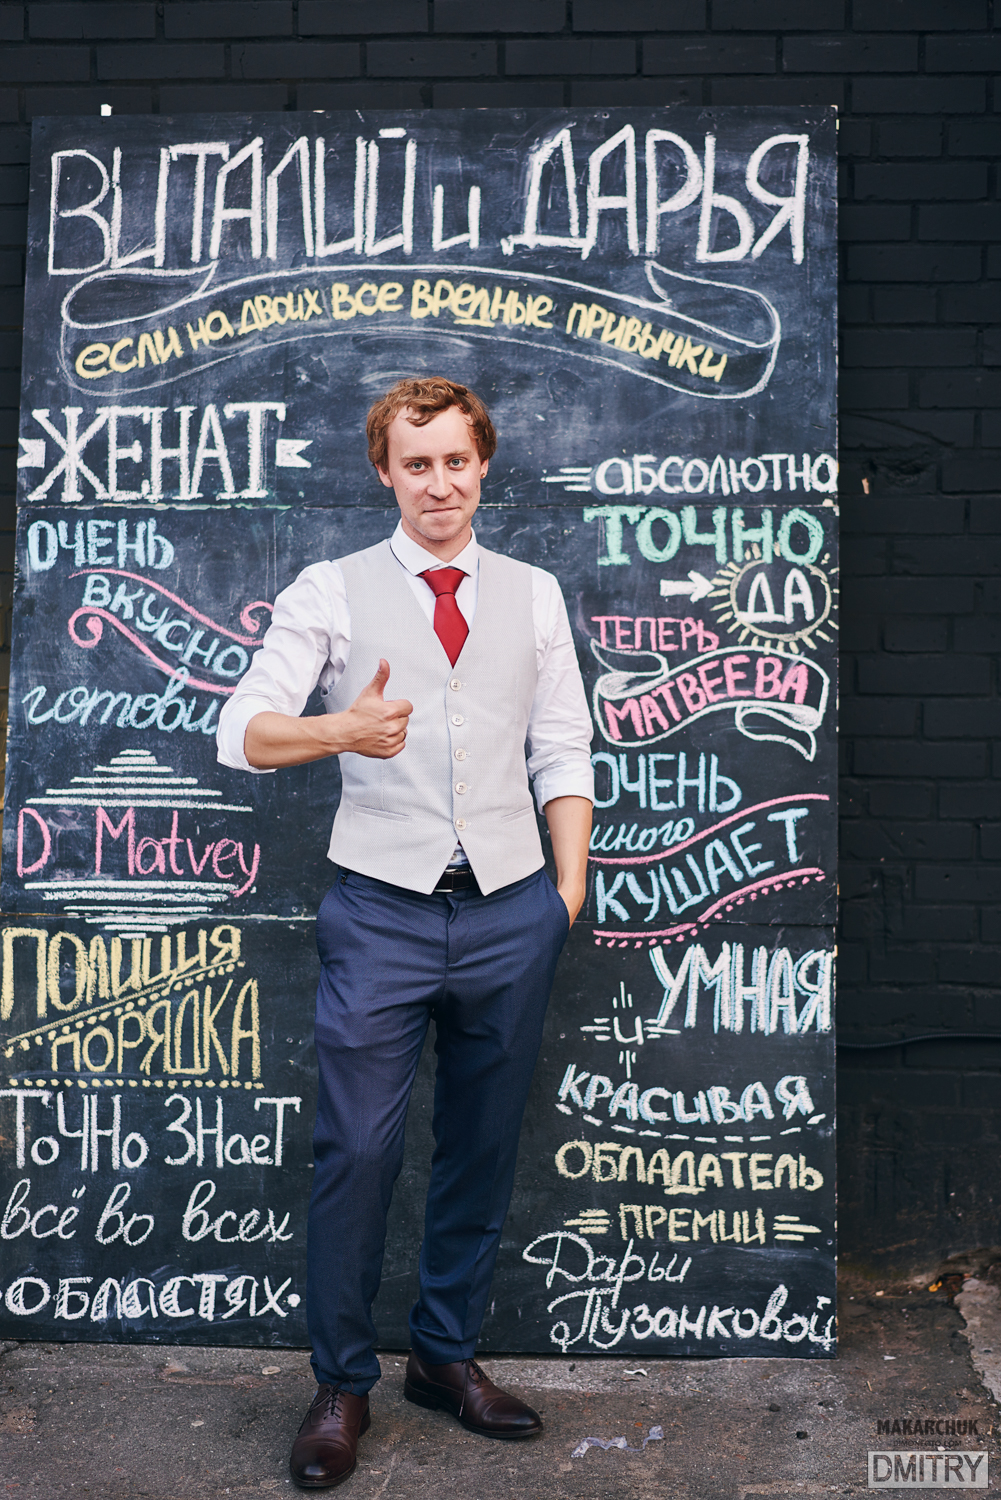 ВИТАЛИЙ и ДАРЬЯ
если на двоих все вредные привычки
ЖЕНАТ
ОЧЕНЬ
ВКУСНО
готови
D Matvey
ПОЛИЦИЯ
ПОРЯДКА
ТоЧНо ЗНаеТ
всё во всех
ОБЛАСТЯХ.
АБСОЛЮТНО
ТОЧНО
ДА
ТЕПЕРЬ
МАТВЕЕВА
ОЧЕНЬ
много
КУШАЕТ
УМНАЯ
и
КРАСИВАЯ
ОБЛАДАТЕЛЬ
ПРЕМИИ
Дарьи
Пузанковой
MAKARCHUK
DMITRY